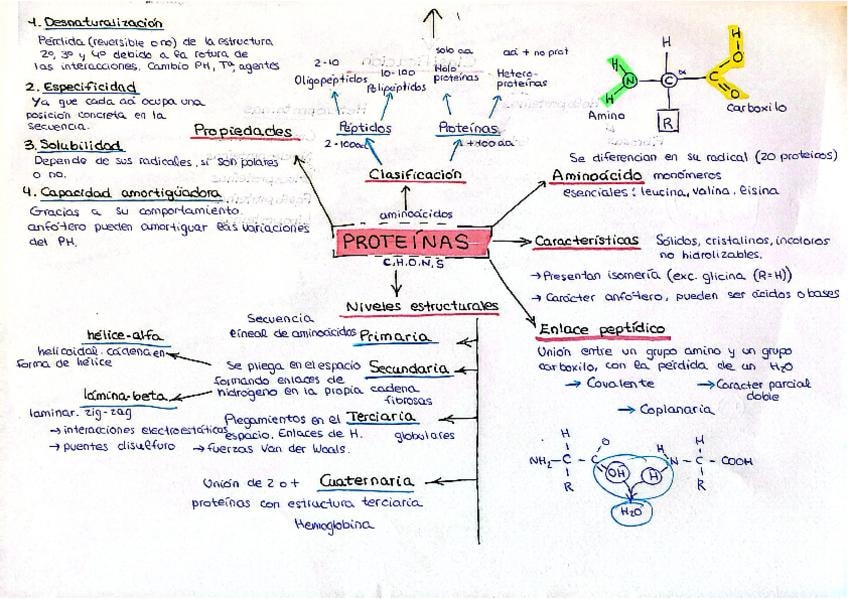 1. Desnaturalización
Pérdida (reversible o no) de la estructura
2º, 3º y 4º debido a la rotura de
las interacciones. Cambio PH, Tª, agentes
2. Especificidad
Ya que cada aá ocupa una
posición concreta en la
secuencia.
3. Solubilidad
Depende de sus radicales, si son polares
o no.
4. Capacidad amortigüadora
Gracias a su comportamiento
anfótero pueden amortiguar las variaciones
del PH.
Propiedades
2-10
Oligopéptidos
10-100
Polipéptidos
solo aa
Holo
proteínas
aá + no prot
Hetero-
proteínas
Péptidos
2-100aá
Proteínas
1+100 aa
Clasificación
aminoácidos
PROTEÍNAS
C,H,O,N,S
H
H
N
H
C
R
C
O
H
O
Amino
Carboxilo
Se diferencian en su radical (20 proteicos)
Aminoácido monómeros
esenciales: leucina, valina, lisina
Características Sólidos, cristalinos, incoloros
no hidrolizables.
→ Presentan isomería (exc. glicina (R=H))
→ Carácter anfótero, pueden ser ácidos o bases
Enlace peptídico
Unión entre un grupo amino y un grupo
carboxilo, con la pérdida de un H2O
→ Covalente → Caracter parcial
doble
→ Coplanaria
H O H H
NH2 - C - C OH H N - C - COOH
R R
H2O
Niveles estructurales
Secuencia
lineal de aminoácidos Primaria
Se pliega en el espacio Secundaria
formando enlaces de
hidrógeno en la propia cadena
fibrosas
hélice-alfa
helicoidal. cadena en
forma de hélice
lámina-beta
laminar. zig-zag
Plegamientos en el Terciaria
espacio. Enlaces de H. globulares
→ interacciones electroestáticas
→ puentes disulfuro → fuerzas Van der Waals.
Unión de 2 o + Cuaternaria
proteínas con estructura terciaria
Hemoglobina